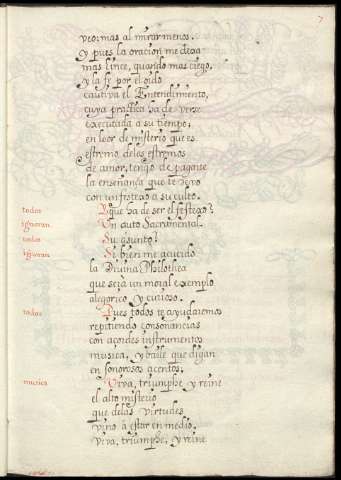 7
veo; mas al mirar menos.
Y pues la oracion me dexa
mas lince, quando mas ciego,
y la fe por el oido
cautiva el Entendimiento,
cuya practica ha de verse
executada a su tiempo;
en loor de misterio que es
estremo de los estremos
de amor, tengo de pagarte
la enseñança que te devo
con un festejo a su culto.
todos Pᵒ que ha de ser el festejo?
ignoran. Un auto Sacramental.
todos Su asunto?
ignoran Si bien me acuerdo
la Divina Philothea
que será un moral exemplo
alegorico y curioso.
todos Pues todos te ayudaremos
repitiendo consonancias
con acordes instrumentos
musica, y baile que digan
en sonorosos acentos;
musica Viva, triumphe y reine
el alto misterio
que de las Virtudes
vino a estar en medio.
Viva, triumphe, y reine